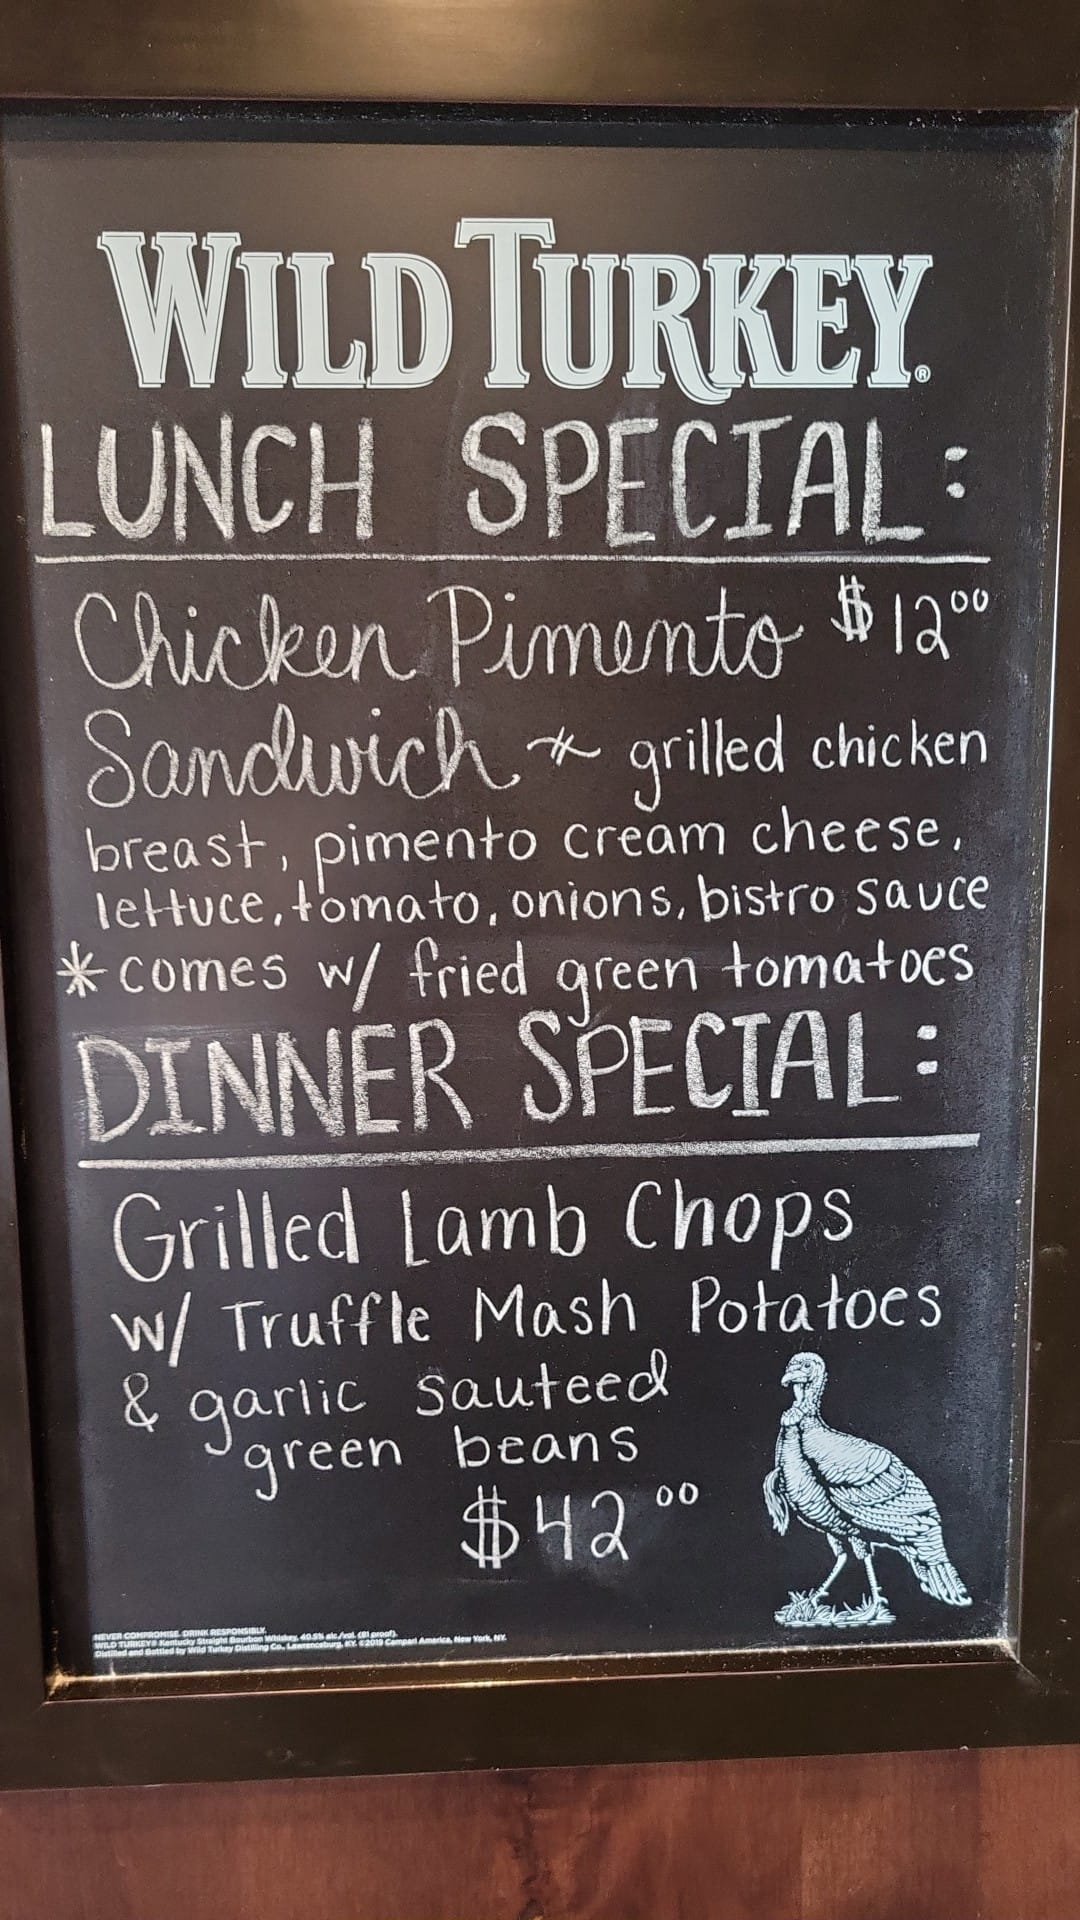 WILD TURKEY®
LUNCH SPECIAL:
Chicken Pimento $12⁰⁰
Sandwich * grilled chicken
breast, pimento cream cheese,
lettuce, tomato, onions, bistro sauce
* comes w/ fried green tomatoes
DINNER SPECIAL:
Grilled Lamb Chops
w/ Truffle Mash Potatoes
& garlic sauteed
green beans
$42⁰⁰
NEVER COMPROMISE. DRINK RESPONSIBLY.
WILD TURKEY® Kentucky Straight Bourbon Whiskey, 40.5% alc./vol. (81 proof).
Distilled and Bottled by Wild Turkey Distilling Co., Lawrenceburg, KY. ©2019 Campari America, New York, NY.